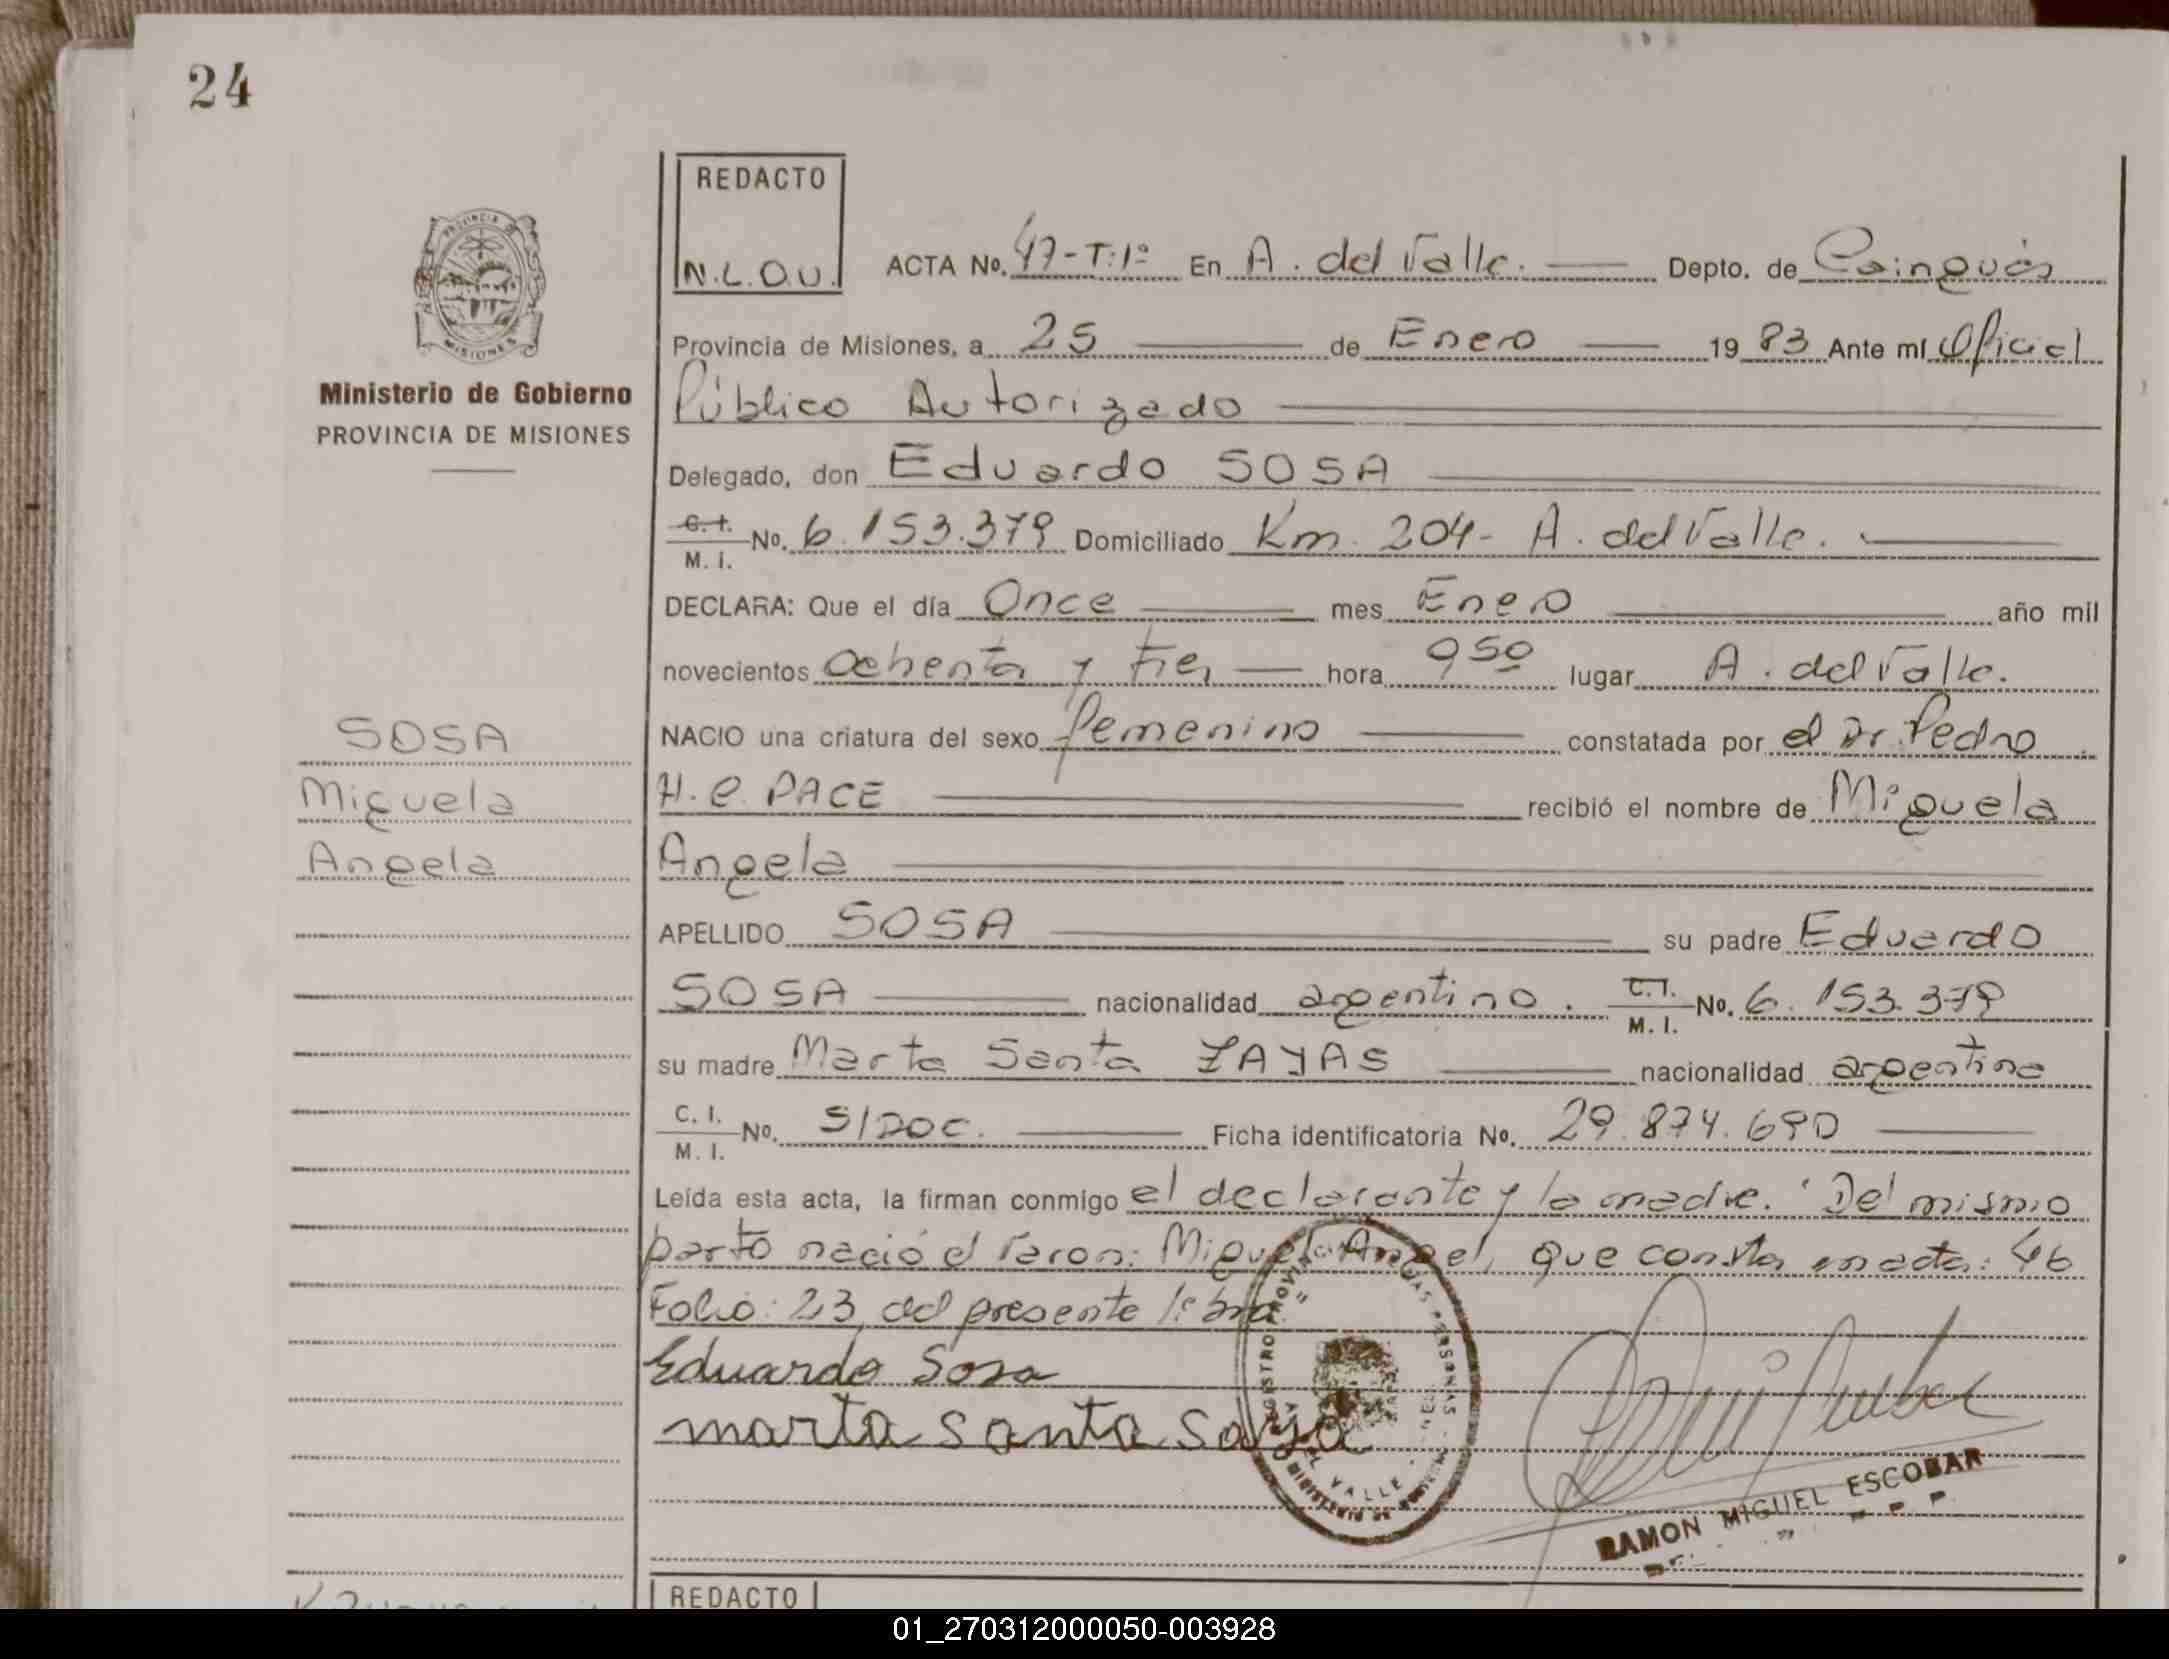 24
REDACTO
N.L.O.U.
PROVINCIA DE
MISIONES
Ministerio de Gobierno
PROVINCIA DE MISIONES
ACTA No. 47-T:1º En A. del Valle. Depto. de Cainguás
Provincia de Misiones, a 25 de Enero 1983 Ante mí Oficial
Público Autorizado
Delegado, don Eduardo SOSA
C. I. M. I. No. 6.153.379 Domiciliado Km. 204- A. del Valle.
DECLARA: Que el día Once mes Enero año mil
novecientos ochenta y tres hora 9 50 lugar A. del Valle.
NACIO una criatura del sexo femenino constatada por el Dr. Pedro
H. C. PACE recibió el nombre de Miguela
Angela
SOSA
Miguela
Angela
APELLIDO SOSA su padre Eduardo
SOSA nacionalidad argentino. C. I. M. I. No. 6.153.379
su madre Marta Santa ZAYAS nacionalidad argentina
C. I. M. I. No. S/DOC. Ficha identificatoria No. 29.874.690
Leída esta acta, la firman conmigo el declarante y la madre. "Del mismo
parto nació el varon: Miguel Angel, que consta en acta: 46
Folio: 23, del presente libro."
Eduardo Sosa
marta santa saya
VALLE
RAMON MIGUEL ESCOBAR
REDACTO
01_270312000050-003928